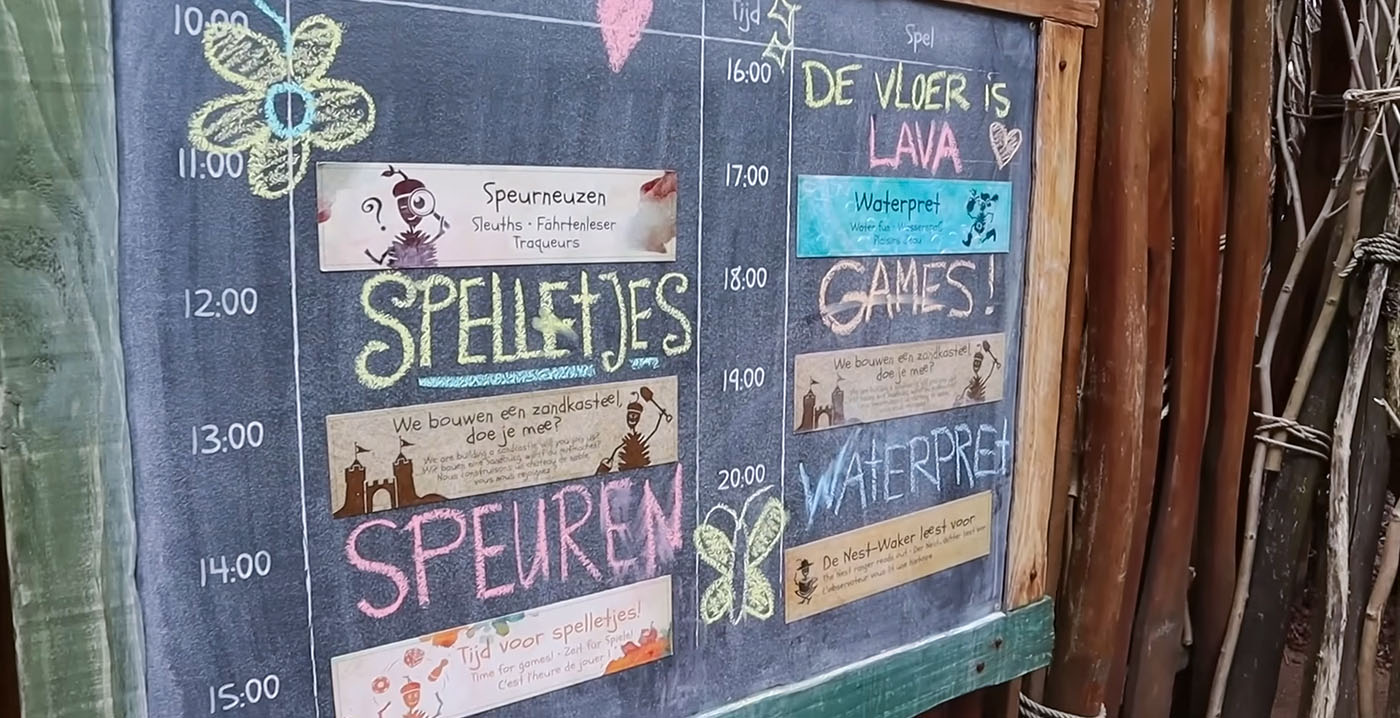 10:00
11:00
Speurneuzen
Sleuths • Fährtenleser
Traqueurs
12:00
SPELLETJES
We bouwen een zandkasteel,
doe je mee?
We are building a sandcastle, will you join us?
Wir bauen eine Sandburg, willst du mitmachen?
Nous construisons un château de sable,
vous nous rejoignez
13:00
SPEUREN
14:00
Tijd voor spelletjes!
Time for games! • Zeit für Spiele!
C'est l'heure de jouer!
15:00
Tijd
Spel
16:00
DE VLOER IS
LAVA
17:00
Waterpret
Water fun • Wasserspaß
Plaisirs d'eau
18:00
GAMES!
We bouwen een zandkasteel,
doe je mee?
19:00
WATERPRET
20:00
De Nest-Waker leest voor
The Nest ranger reads out • Der Nest-
L'observateur vous lit une